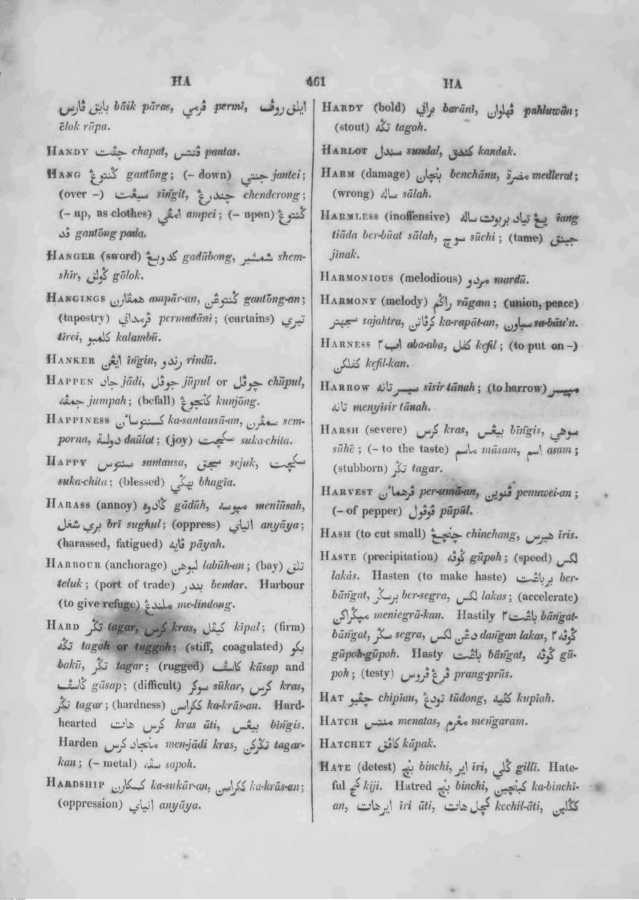 HA 461 HA
بايق ڤارس bāik pāras, ڤرمي permi, ايلق روڤ
ēlok rūpa.
HANDY چڤت chapat, ڤنتس pantas.
HANG ڬنتوڠ gantōng; (– down) جنتي jantei;
(over –) سيڠت sīngit, چندرڠ chenderong;
(– up, as clothes) امڤي ampei; (– upon) ڬنتوڠ
ڤد gantōng pada.
HANGER (sword) ڬدوبڠ gadūbong, شمشير shem-
shīr, ڬولق gōlok.
HANGINGS همڤارن ampār-an, ڬنتوڠن gantōng-an;
(tapestry) ڤرمداني permadāni; (curtains) تيري
tīrei, كلمبو kalambū.
HANKER ايڠن īngin, رندو rindū.
HAPPEN جاد jādi, جوڤل jūpul or چوڤل chūpul,
جمڤه jumpah; (befall) كنجوڠ kunjōng.
HAPPINESS كسنتوسان ka-santausā-an, سمڤرن sem-
porna, دولة daūlat; (joy) سكچيت suka-chita.
HAPPY سنتوس santausa, سجق sejuk, سكچيت
suka-chita; (blessed) بهڬي bhagīa.
HARASS (annoy) ڬادوه gādūh, منيوسه meniūsah,
بري شغل brī sughul; (oppress) انياي anyāya;
(harassed, fatigued) ڤايه pāyah.
HARBOUR (anchorage) لبوهن labūh-an; (bay) تلق
teluk; (port of trade) بندر bendar. Harbour
(to give refuge) ملندڠ me-lindong.
HARD تڬر tagar, كرس kras, كيڤل kīpal; (firm)
تڬه tagoh or tuggoh; (stiff, coagulated) بكو
bakū, تڬر tagar; (rugged) كاسڤ kāsap and
ڬاسڤ gāsap; (difficult) سوكر sūkar, كرس kras,
تڬر tagar; (hardness) ككراسن ka-krās-an. Hard-
hearted كرس هات kras āti, بيڠس bīngis.
Harden منجاد كرس men-jādi kras, تڬركن tagar-
kan; (– metal) سڤه sapoh.
HARDSHIP كسكارن ka-sukār-an, ككراسن ka-krās-an;
(oppression) انياي anyāya.
HARDY (bold) براني barāni, ڤهلوان pahluwān;
(stout) تڬه tagoh.
HARLOT سندل sundal, كندق kandak.
HARM (damage) بنچان benchāna, مضرة medlerat;
(wrong) ساله sālah.
HARMLESS (inoffensive) يڠ تياد بربوت ساله īang
tiāda ber-būat sālah, سوچ sūchi; (tame) جينق
jīnak.
HARMONIOUS (melodious) مردو mardū.
HARMONY (melody) راڬم rāgam; (union, peace)
سجهتر sajahtra, كرڤاتن ka-rapāt-an,
HARNESS اب٢ aba-aba, كفل kefil; (to put on –)
كفلكن kefil-kan.
HARROW سيسر تانه sīsir tānah; (to harrow) ميسر
تانه menyīsir tānah.
HARSH (severe) كرس kras, بيڠس bīngis, سوهي
sūhē; (– to the taste) ماسم māsam, اسم asam;
(stubborn) تڬر tagar.
HARVEST ڤرهمان per-umā-an, ڤنوين penuwei-an;
(– of pepper) ڤوڤول pūpūl.
HASH (to cut small) چنچڠ chinchang, هيرس īris.
HASTE (precipitation) ڬوڤه gūpoh; (speed) لكس
lakās. Hasten (to make haste) بربڠت ber-
bāngat, برسڬر ber-segra, لكس lakas; (accelerate)
menīegrā-kan. Hastily باڠت٢ bāngat-
bāngat, سڬر segra, دڠن لكس dangan lakas, ڬوڤه٢
gūpoh-gūpoh. Hasty باڠت bāngat, ڬوڤه gū-
poh; (testy) ڤرڠ ڤروس prang-prūs.
HAT چڤيو chipīau, تودڠ tūdong, كڤيه kupīah.
HATCH منتس menatas, مڠرم mengaram.
HATCHET كاڤق kāpak.
HATE (detest) بنچ binchi, اير īri, ڬلي gillī. Hate-
ful كج kiji. Hatred بنچ binchi, كبنچين ka-binchi-
an, اير هات īri āti, كچل هات kechil-āti,